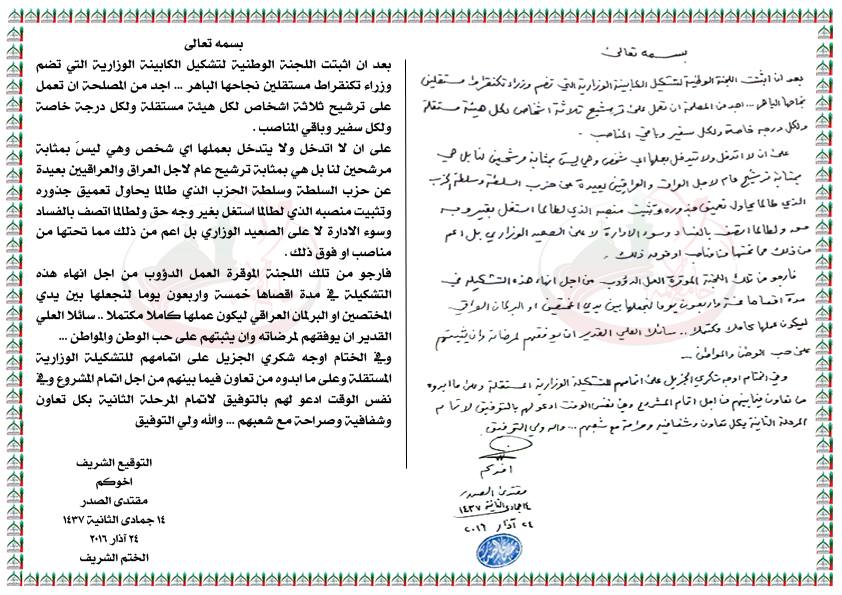 بسمه تعالى
بعد ان اثبتت اللجنة الوطنية لتشكيل الكابينة الوزارية التي تضم
وزراء تكنقراط مستقلين نجاحها الباهر ... اجد من المصلحة ان تعمل
على ترشيح ثلاثة اشخاص لكل هيئة مستقلة ولكل درجة خاصة
ولكل سفير وباقي المناصب .
على ان لا اتدخل ولا يتدخل بعملها اي شخص وهي ليسَ بمثابة
مرشحين لنا بل هي بمثابة ترشيح عام لاجل العراق والعراقيين بعيدة
عن حزب السلطة وسلطة الحزب الذي طالما يحاول تعميق جذوره
وتثبيت منصبه الذي لطالما استغل بغير وجه حق ولطالما اتصف بالفساد
وسوء الادارة لا على الصعيد الوزاري بل اعم من ذلك مما تحتها من
مناصب او فوق ذلك .
فارجو من تلك اللجنة الموقرة العمل الدؤوب من اجل انهاء هذه
التشكيلة في مدة اقصاها خمسة واربعون يوما لنجعلها بين يدي
المختصين او البرلمان العراقي ليكون عملها كاملا مكتملا .. سائلا العلي
القدير ان يوفقهم لمرضاته وان يثبتهم على حب الوطن والمواطن ...
وفي الختام اوجه شكري الجزيل على اتمامهم للتشكيلة الوزارية
المستقلة وعلى ما ابدوه من تعاون فيما بينهم من اجل اتمام المشروع وفي
نفس الوقت ادعو لهم بالتوفيق لاتمام المرحلة الثانية بكل تعاون
وشفافية وصراحة مع شعبهم ... والله ولي التوفيق
التوقيع الشريف
اخوكم
مقتدى الصدر
١٤ جمادى الثانية ١٤٣٧
٢٤ آذار ٢٠١٦
الختم الشريف
بسمه تعالى
بعد ان اثبتت اللجنة الوطنية لتشكيل الكابينة الوزارية التي تضم وزراء تكنقراط مستقلين
نجاحها الباهر ... اجد من المصلحة ان تعمل على ترشيح ثلاثة اشخاص لكل هيئة مستقلة
ولكل درجة خاصة ولكل سفير وباقي المناصب .
على ان لا اتدخل ولا يتدخل بعملها اي شخص وهي ليست بمثابة مرشحين لنا بل هي
بمثابة ترشيح عام لاجل العراق والعراقيين بعيدة عن حزب السلطة وسلطة الحزب
الذي طالما يحاول تعميق جذوره وتثبيت منصبه الذي لطالما استغل بغير وجه
حق ولطالما اتصف بالفساد وسوء الادارة لا على الصعيد الوزاري بل اعم
من ذلك مما تحتها من مناصب او فوق ذلك .
فارجو من تلك اللجنة الموقرة العمل الدؤوب من اجل انهاء هذه التشكيلة في
مدة اقصاها خمسة واربعون يوما لنجعلها بين يدي المختصين او البرلمان العراقي
ليكون عملها كاملا مكتملا .. سائلا العلي القدير ان يوفقهم لمرضاته وان يثبتهم
على حب الوطن والمواطن ...
وفي الختام اوجه شكري الجزيل على اتمامهم للتشكيلة الوزارية المستقلة وعلى ما ابدوه
من تعاون فيما بينهم من اجل اتمام المشروع وفي نفس الوقت ادعو لهم بالتوفيق لاتمام
المرحلة الثانية بكل تعاون وشفافية وصراحة مع شعبهم ... والله ولي التوفيق
اخوكم
مقتدى الصدر
١٤ جمادى الثانية ١٤٣٧
٢٤ آذار ٢٠١٦